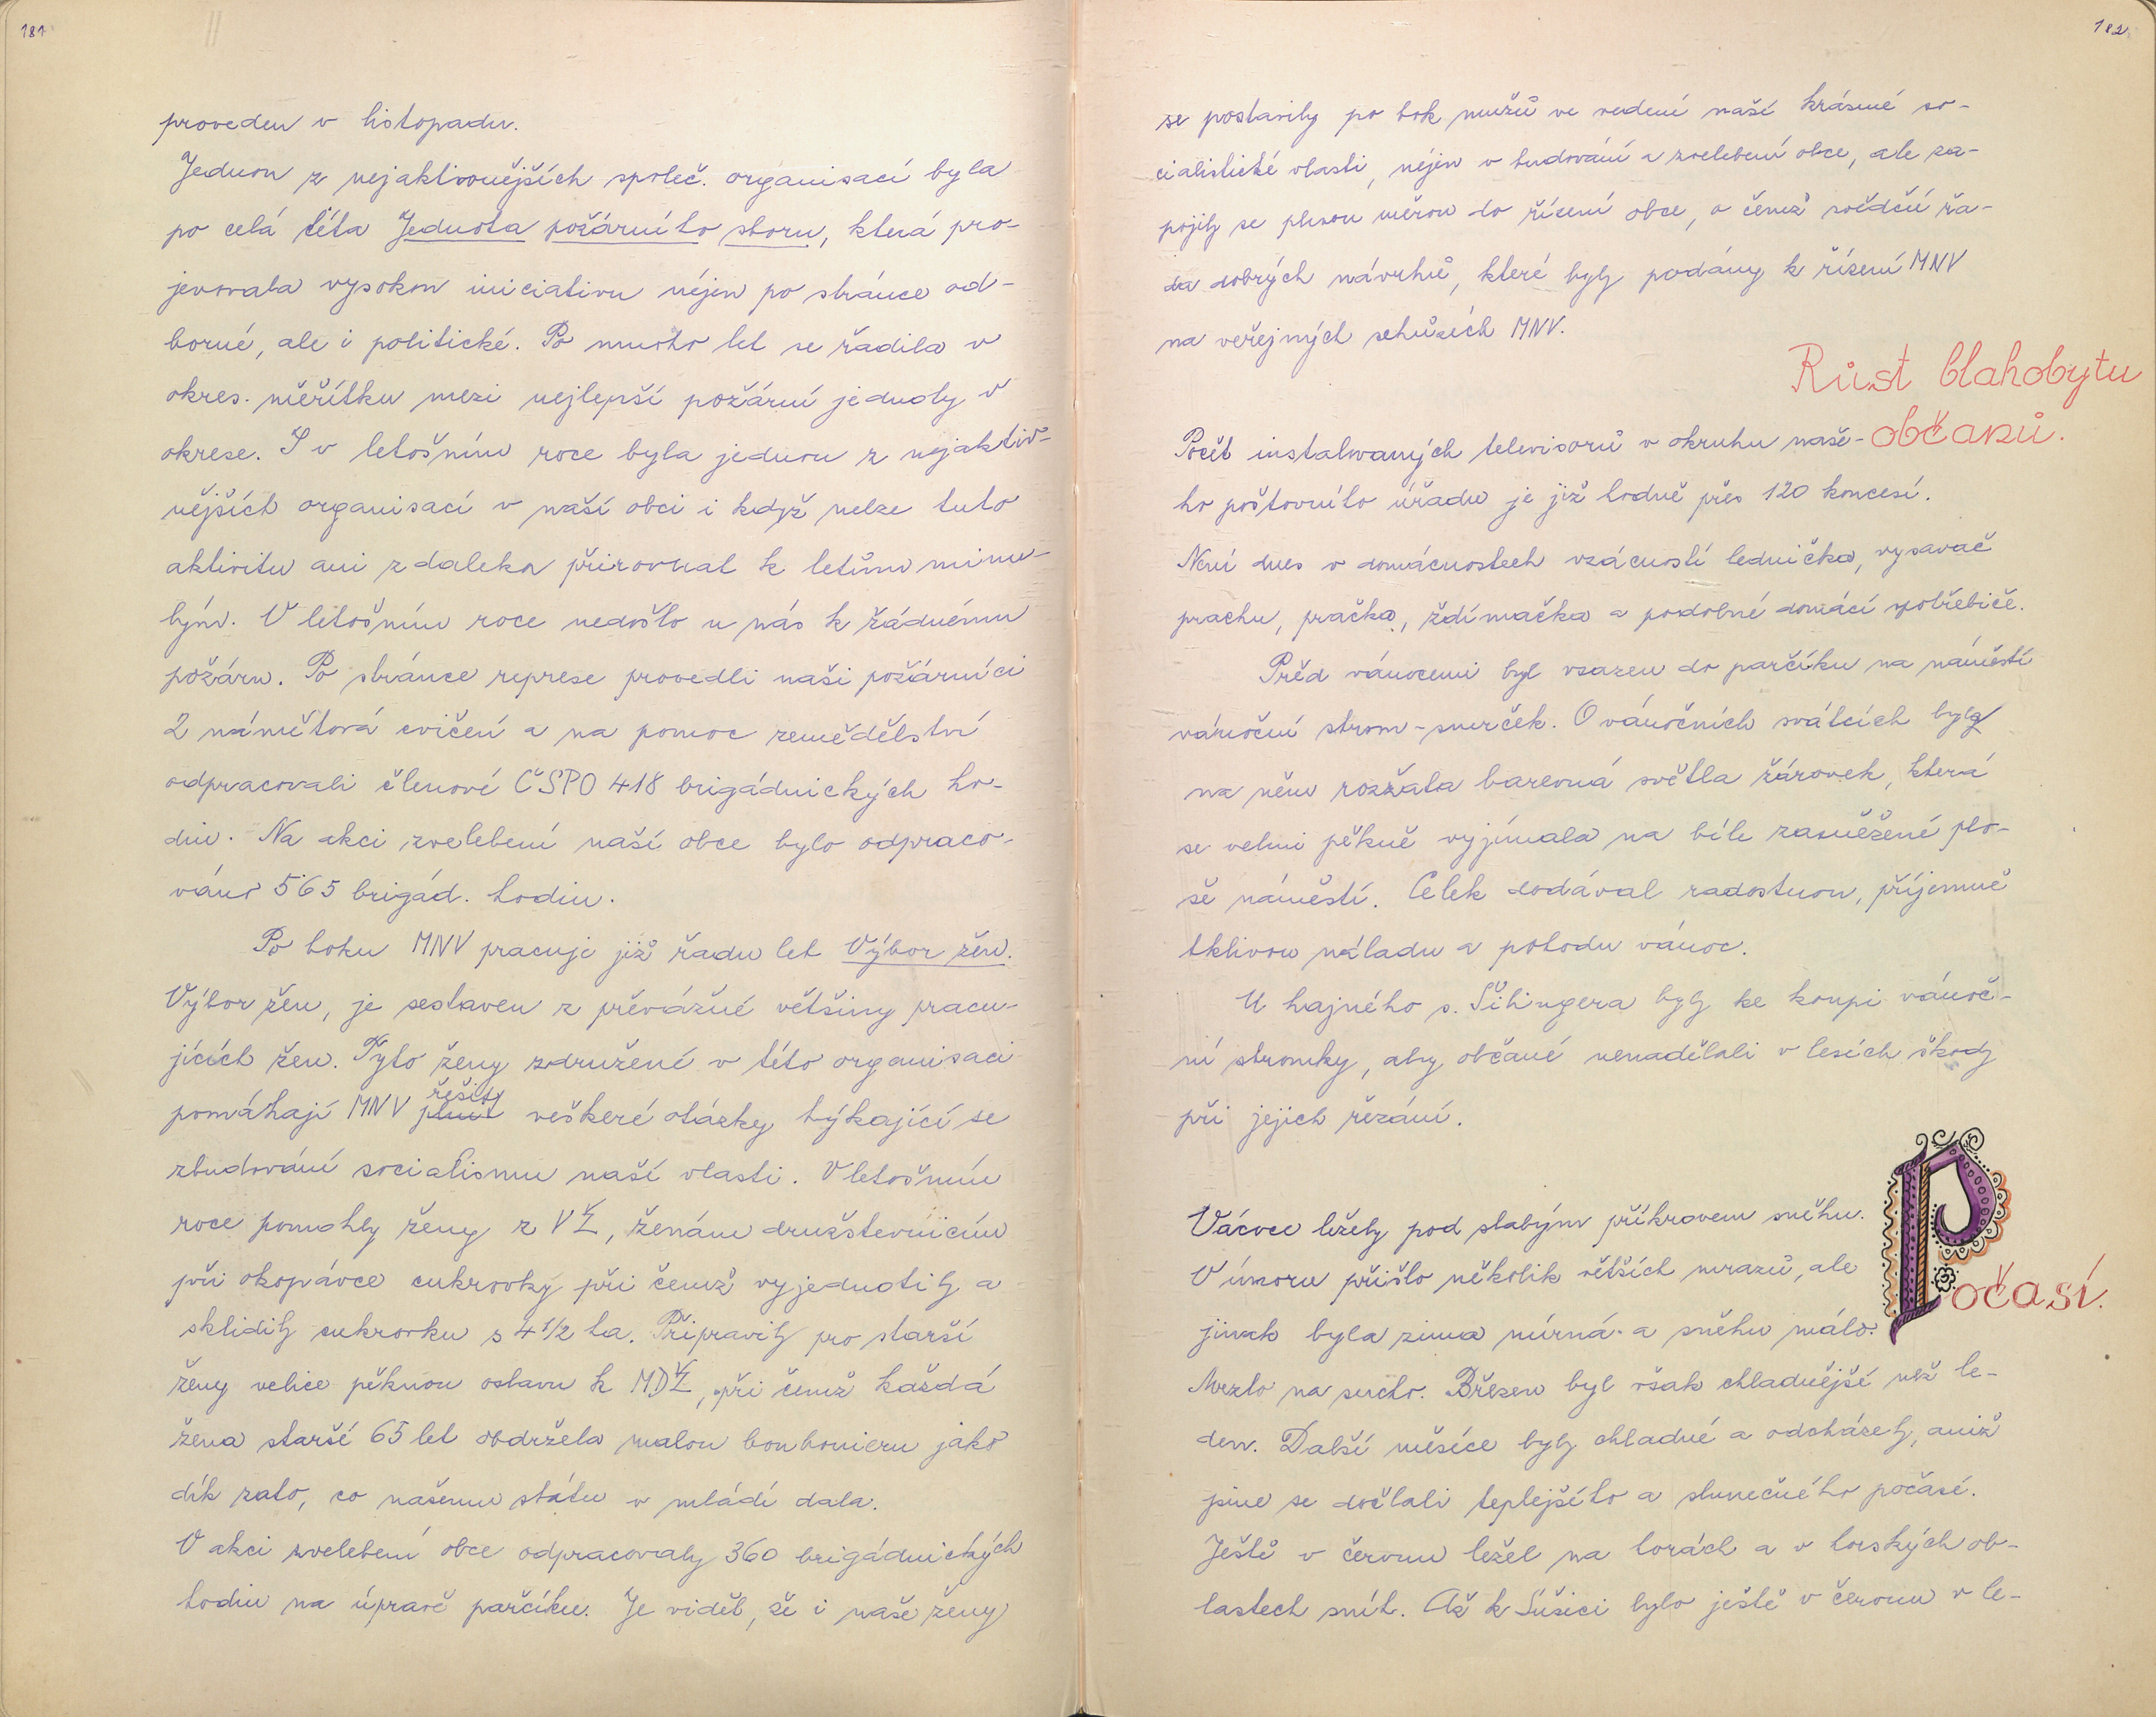 181
proveden v listopadu.
Jednou z nejaktivnějších společ. organisací byla
po celá léta Jednota požárního sboru, která pro-
jevovala vysokou iniciativu nejen po stránce od-
borné, ale i politické. Po mnoho let se řadila v
okres. měřítku mezi nejlepší požární jednoty v
okrese. I v letošním roce byla jednou z nejaktiv-
nějších organisací v naší obci i když nelze tuto
aktivitu ani zdaleka přirovnat k letům minu-
lým. V letošním roce nedošlo u nás k žádnému
požáru. Po stránce represe provedli naši požárníci
2 námětová cvičení a na pomoc zemědělství
odpracovali členové ČSPO 418 brigádnických ho-
din. Na akci zvelebení naší obce bylo odpraco-
váno 565 brigád. hodin.
Po boku MNV pracuje již řadu let Výbor žen.
Výbor žen, je sestaven z převážné většiny pracu-
jících žen. Tyto ženy združené v této organisaci
pomáhají MNV řešit veškeré otázky týkající se
zbudování socialismu naší vlasti. V letošním
roce pomohly ženy z VŽ, ženám družstevnicím
při okopávce cukrovky při čemž vyjednotily a
sklidily cukrovku s 4 1/2 ha. Připravily pro starší
ženy velice pěknou oslavu k MDŽ, při čemž každá
žena starší 65 let obdržela malou bonbonieru jako
dík zato, co našemu státu v mládí dala.
V akci zvelebení obce odpracovaly 360 brigádnických
hodin na úpravě parčíku. Je vidět, že i naše ženy
182
se postavily po bok mužů ve vedení naší krásné so-
cialistické vlasti, nejen v budování a zvelebení obce, ale za-
pojily se plnou měrou do řízení obce, o čemž svědčí řa-
da dobrých návrhů, které byly podány k řízení MNV
na veřejných schůzích MNV.
Růst blahobytu
občanů.
Počet instalovaných televisorů v okruhu naše-
ho poštovního úřadu je již hodně přes 120 koncesí.
Není dnes v domácnostech vzácností lednička, vysavač
prachu, pračka, ždímačka a podobné domácí spotřebiče.
Před vánocemi byl vsazen do parčíku na náměstí
vánoční strom - smrček. O vánočních svátcích byly
na něm rozžata barevná světla žárovek, která
se velmi pěkně vyjímala na bíle zasněžené plo-
še náměstí. Celek dodával radostnou, příjemně
tklivou náladu a pohodu vánoc.
U hajného s. Šihingera byly ke koupi vánoč-
ní stromky, aby občané nenadělali v lesích škody
při jejich řezání.
Počasí.
Vácvce ležely pod slabým příkrovem sněhu.
V únoru přišlo několik větších mrazů, ale
jinak byla zima mírná a sněhu málo.
Mrzlo na sucho. Březen byl však chladnější než le-
den. Další měsíce byly chladné a odcházely, aniž
jsme se dočkali teplejšího a slunečného počasí.
Ještě v červnu ležel na horách a v horských ob-
lastech sníh. Až k Sušici bylo ještě v červnu v le-